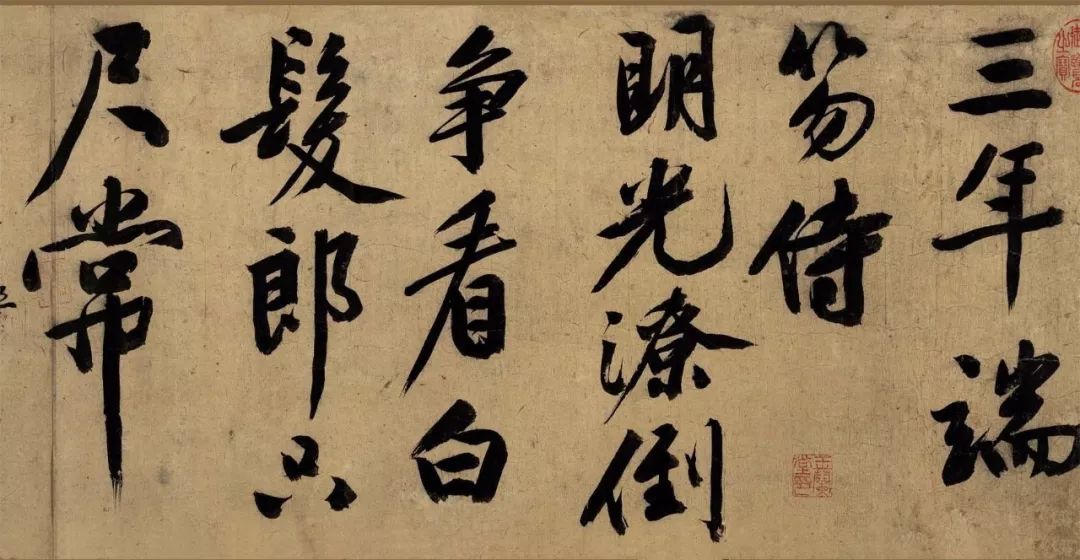 三年端
笏侍
明光潦倒
争看白
髮郎只
尺常